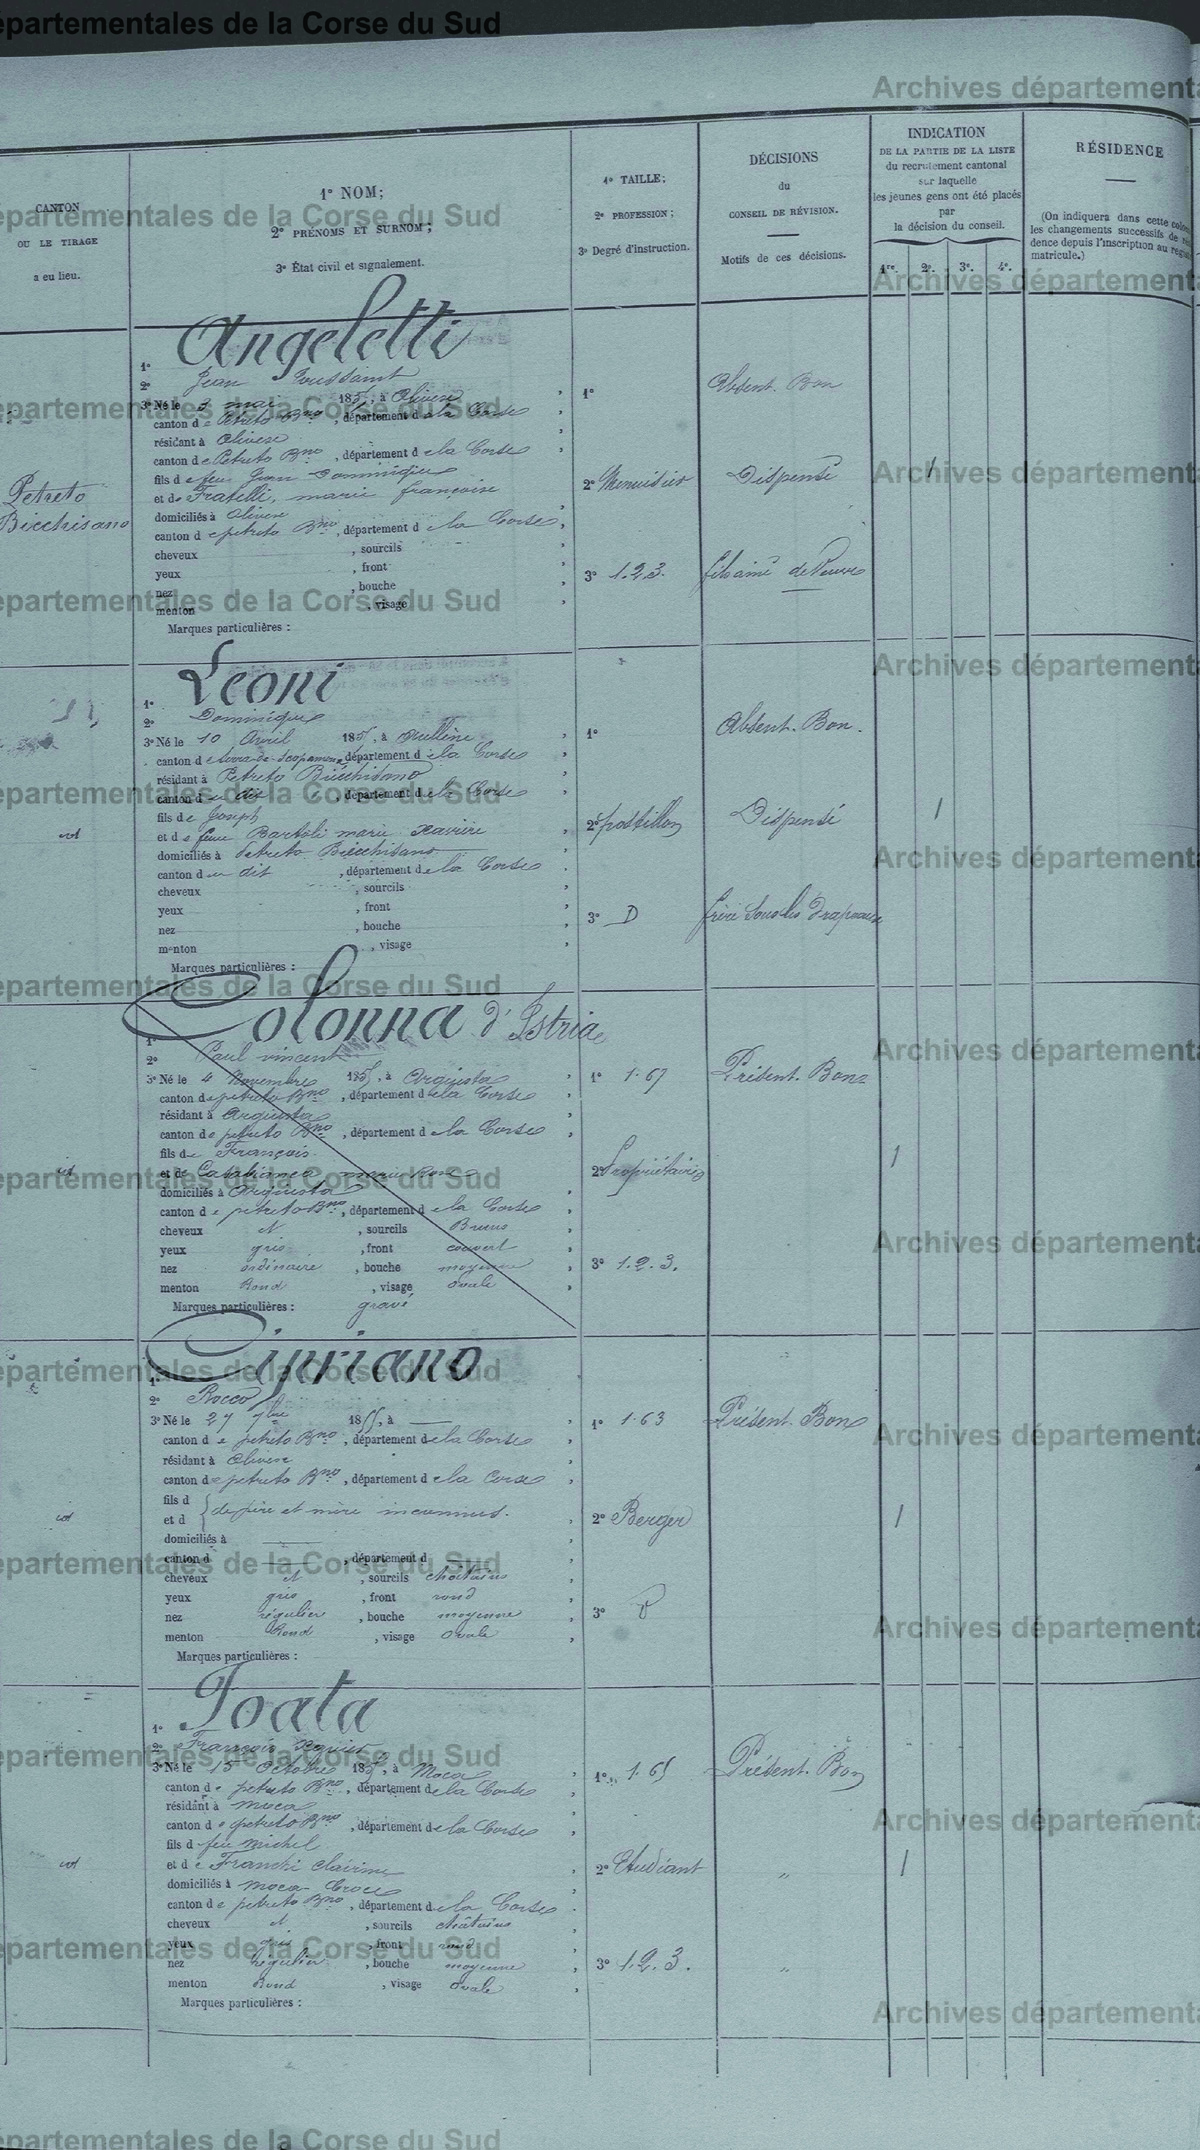 épartementales de la Corse du Sud
Archives département
CANTON
OU LE TIRAGE
a eu lieu.
1° NOM;
2° PRÉNOMS ET SURNOM;
3° État civil et signalement.
1° TAILLE;
2° PROFESSION;
3° Degré d'instruction.
DÉCISIONS
du
CONSEIL DE RÉVISION.
Motifs de ces décisions.
INDICATION
DE LA PARTIE DE LA LISTE
du recrutement cantonal
sur laquelle
les jeunes gens ont été placés
par
la décision du conseil.
1re. 2e. 3e. 4e.
RÉSIDENCE
(On indiquera dans cette
les changements successifs de
dence depuis l'inscription au
matricule.)
Petreto
Bicchisano
1° Angeletti
2° Jean Toussaint
3° Né le 3 mai 1855, à Olivese
canton de Petreto Bno, département de la Corse
résidant à Olivese
canton de Petreto Bno, département de la Corse
fils de feu Jean Dominique
et de Fratelli, marie françoise
domiciliés à Olivese
canton de petreto Bno, département de la Corse
cheveux , sourcils
yeux , front
nez , bouche
menton , visage
Marques particulières :
1°
2° Menuisier
3° 1.2.3.
Absent. Bon
Dispensé
fils aîné de Veuve
1
1° Leoni
2° Dominique
3° Né le 10 Avril 1855, à Aullène
canton de Serra-di-Scopamene, département de la Corse
résidant à Petreto Bicchisano
canton du dit , département de la Corse
fils de Joseph
et de feue Bartoli marie Xavière
domiciliés à Petreto Bicchisano
canton du dit , département de la Corse
cheveux , sourcils
yeux , front
nez , bouche
menton , visage
Marques particulières :
id
1°
2° postillon
3° D
Absent. Bon.
Dispensé
frère sous les drapeaux
1
1° Colonna d'Istria
2° Paul vincent
3° Né le 4 Novembre 1855, à Argiusta
canton de petreto Bno, département de la Corse
résidant à Argiusta
canton de petreto Bno, département de la Corse
fils de François
et de Casabianca marie
domiciliés à Argiusta
canton de petreto Bno, département de la Corse
cheveux et , sourcils Bruns
yeux gris , front couvert
nez ordinaire , bouche moyenne
menton Rond , visage Ovale
Marques particulières : gravé
id
1° 1.67
2° Propriétaire
3° 1.2.3.
Présent. Bon
1
1° Cipriano
2° Rocco
3° Né le 27 7bre 1855, à
canton de petreto Bno, département de la Corse
résidant à Olivese
canton de petreto Bno, département de la Corse
fils d
et d
de père et mère inconnus.
domiciliés à
canton d , département d
cheveux et , sourcils châtains
yeux gris , front rond
nez régulier , bouche moyenne
menton Rond , visage Ovale
Marques particulières :
id
1° 1.63
2° Berger
3°
Présent. Bon
1
1° Foata
2° François
3° Né le 15 Octobre 1855, à Moca
canton de petreto Bno, département de la Corse
résidant à moca
canton de petreto Bno, département de la Corse
fils de feu michel
et de Franchi clairine
domiciliés à moca Croce
canton de petreto Bno, département de la Corse
cheveux et , sourcils châtains
yeux gris , front rond
nez régulier , bouche moyenne
menton Rond , visage Ovale
Marques particulières :
id
1° 1.65
2° Etudiant
3° 1.2.3.
Présent. Bon
"
"
1